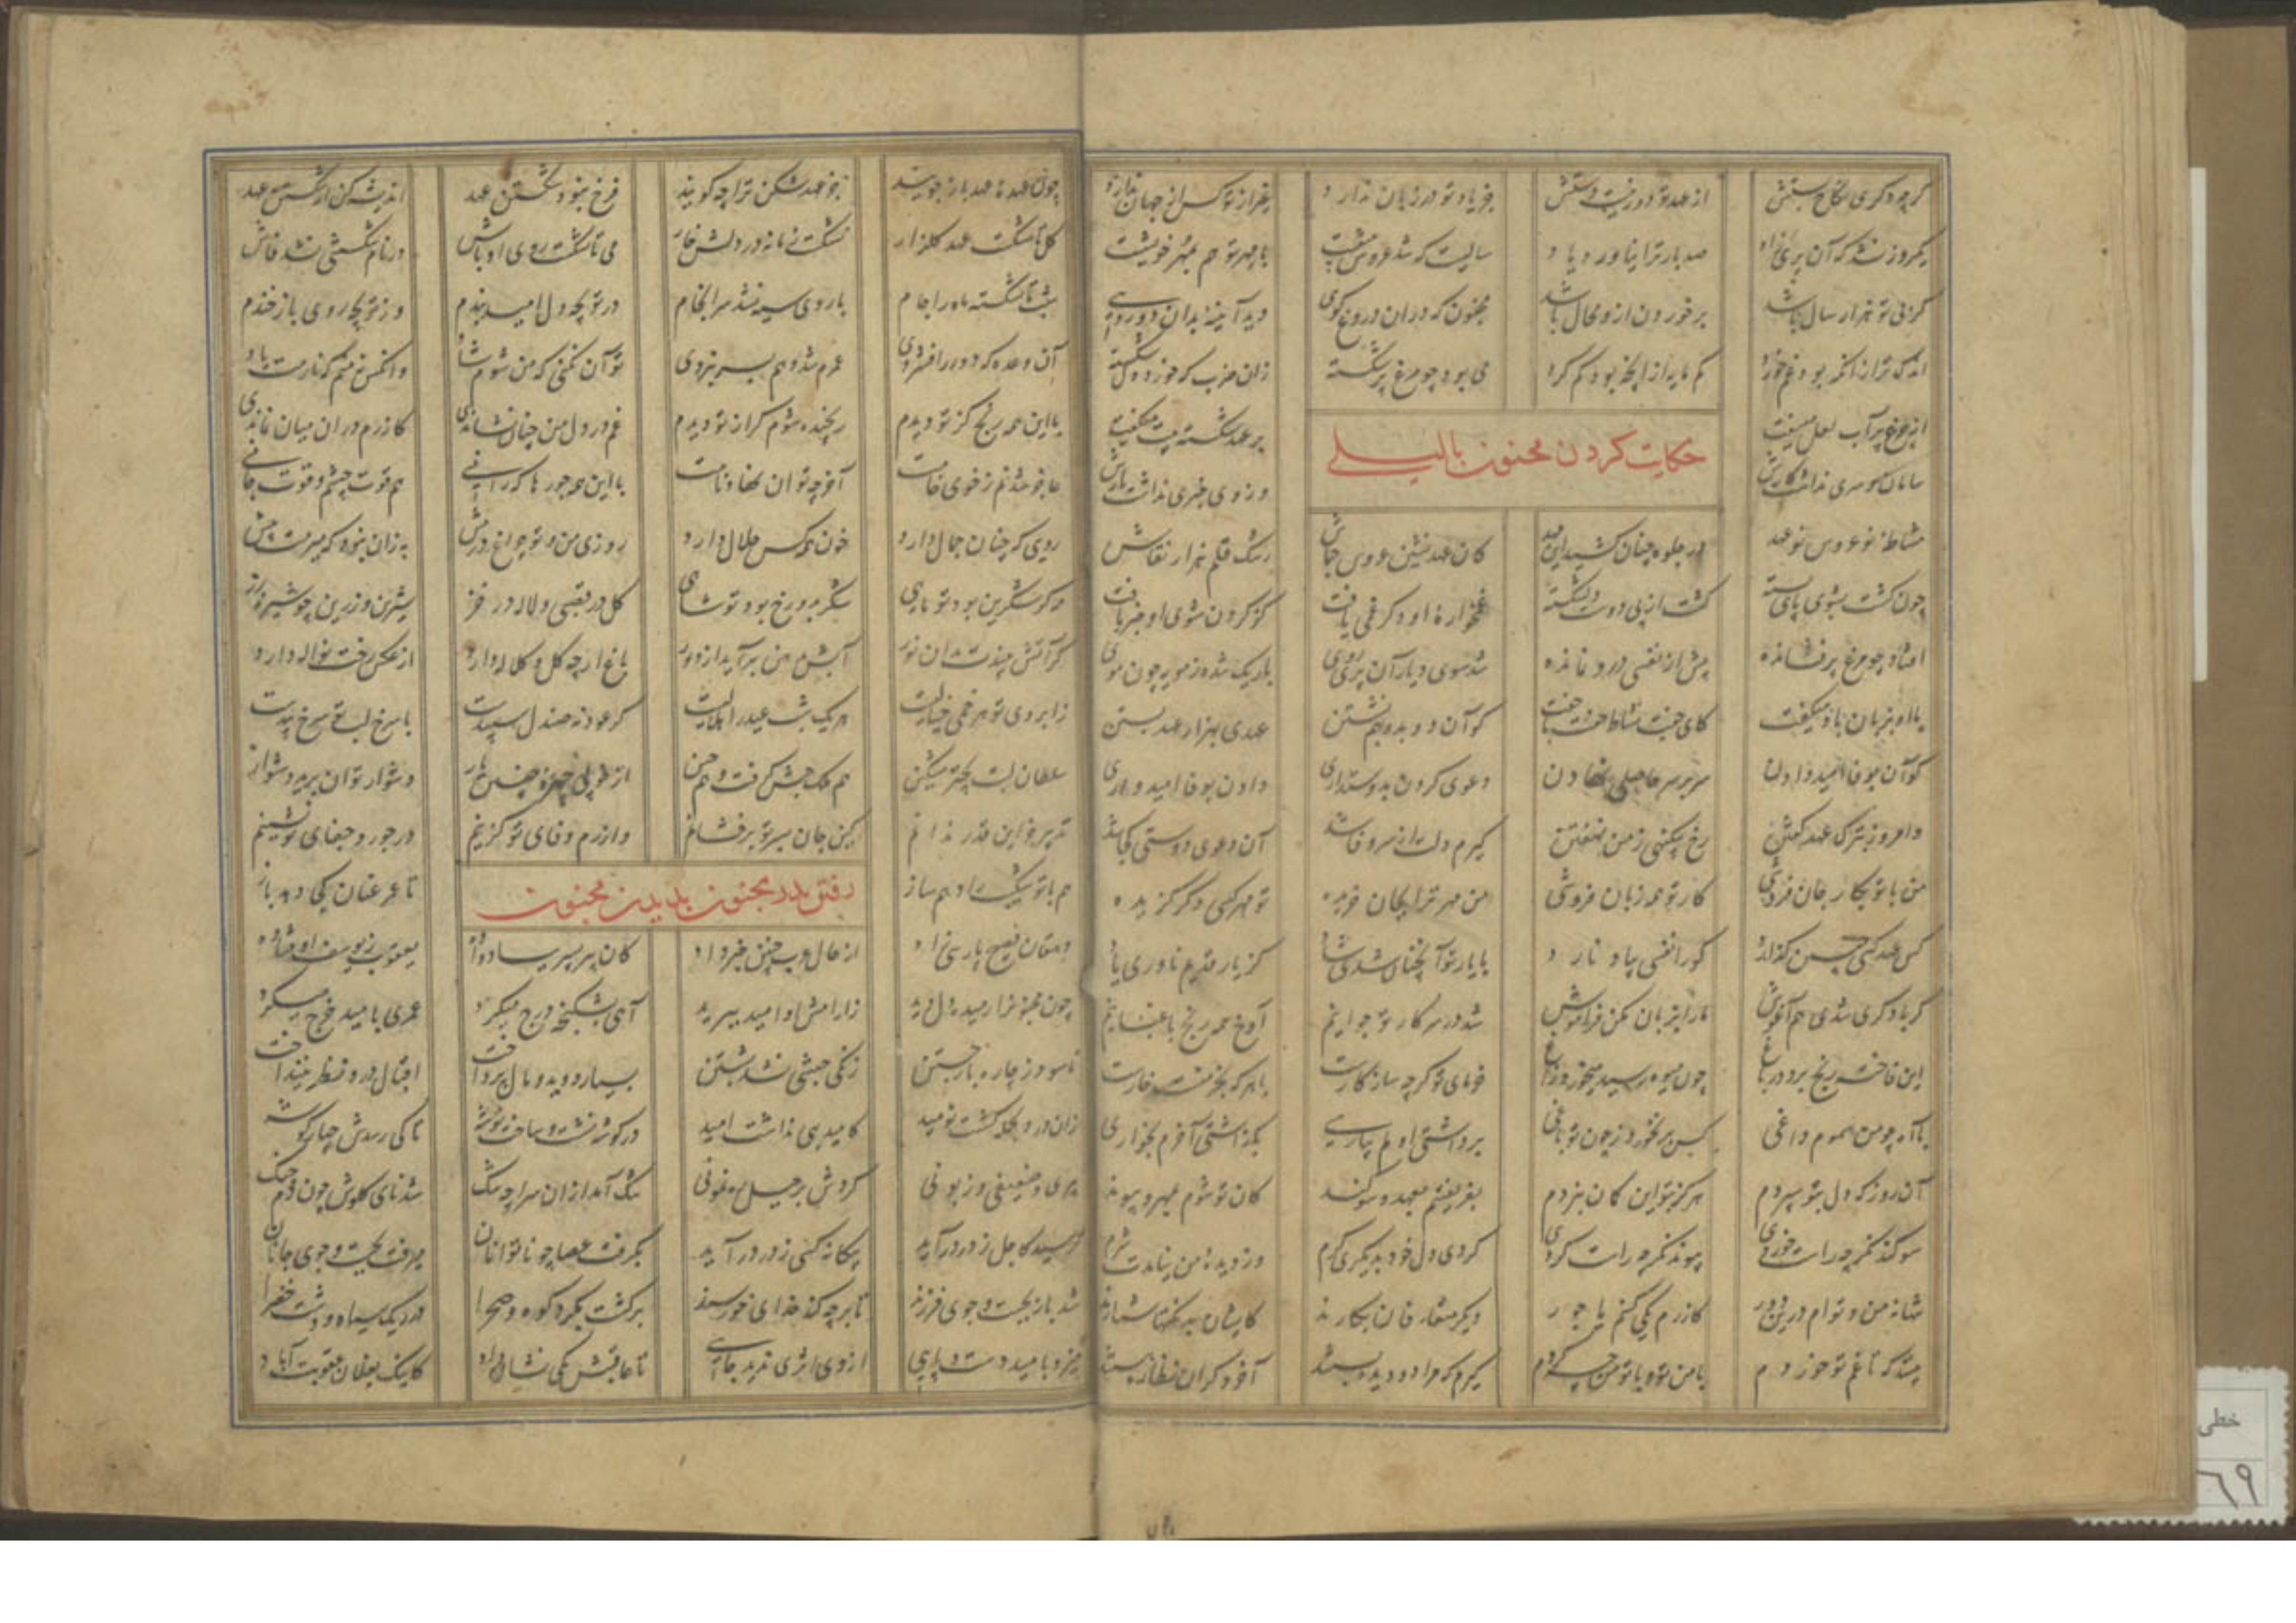 گرچه دگری نکاح بستش از عهد تو دور نیست دستش جز یاد تو در زبان ندارد غیر از تو کس از جهان ندارد
یکروز نشد که آن پری زاد صد بار ترا نیاورد یاد سالیست که شد عروس و بیشست با مهر تو هم بمهر خویشست
گر بی تو هزار سال باشد بر خوردن ازو محال باشد مجنون که در آن دروغ گوی دید آینه بدان دو رویی
اندک تر از آنکه بود غم خورد کم مایه از آنچه بود کم کرد می بود چو مرغ پر شکسته زان ضرب که خورد
حکایت کردن مجنون با لیلی
از مرغ پر آب لعل میسفت بر عهد شکسته بیت میگفت
سامان سری نداشت کارش وز وی خبری نداشت یارش
مشاطه نو عروس نو عهد در جلوه چنان کشید این مهد کان مهد نشین عروس جماش رشک قلم هزار نقاش
چون گشت بشوی پای بسته گشت از پی دوست دلشکسته غمخواره او دگر غمی یافت کز کردن شوی او خبر یافت
افتاد چو مرغ پر فشانده بیش از نفسی درو نمانده شد سوی دیار آن پری روی باریک شده ز مویه چون موی
با او بزبان باد میگفت کای جفت نشاط گشته با جفت کو آن دو بدو بهم نشستن عهدی بهزار عهد بستن
کو آن بوفا امید دادن سر بر سر عاجلی نهادن دعوی کردن بدوستداری دادن بوفا امیدواری
و امروز بترک عهد گفتن رخ بیگنهی ز من نهفتن گیرم دلت از سر وفا شد آن دعوی دوستی کجا شد
من با تو بکار جان فروشی کار تو همه زبان فروشی من مهر ترا بجان خریده تو مهر کسی دگر گزیده
کس عهد کسی چنین گذارد کو را نفسی بیاد نارد با یار نو آنچنان شدی شاد کز یار قدیم ناوری یاد
گر با دگری شدی هم آغوش ما را بزبان مکن فراموش شد در سر کار تو جوانیم آوخ همه رنج باغبانیم
این فاخته رنج برد در باغ چون میوه رسید میخورد زاغ خرمای تو گرچه سازگارست با هر که بجز منست خارست
با آه چو من سموم داغی کس بر نخورد ز چون تو باغی برداشتی اولم بیاری بگذاشتی آخرم بخواری
آن روز که دل بتو سپردم هرگز بتو این گمان نبردم بفریفتیم بعهد و سوگند کان تو شوم بمهر و پیوند
سوگند نگر چه راست خوردی پیوند نگر چه راست کردی کردی دل خود بدیگری گرم وز دیده من نیامدت شرم
تنها نه من و توام درین دور کازرم یکی کنم با جور دیگر متعارفان بکارند کایشان بد و نیک
بیند که تا غم تو خوردم با من تو و با تو من چه کردم گیرم که مرا دو دیده بستند آخر دگران نظاره هستند
چون عهده عهد باز جویند جز عهد شکن ترا چه گویند فرخ نبود شکستن عهد اندیشه کن از شکستن عهد
گل تا نشکست عهد گلزار نشکست زمانه در دلش خار می تا نشکست روی اوباش در نام شکستگی نشد فاش
شب تا نشکست ماه را جام با روی سیه نشد سرانجام در تو بچه دل امید بندم وز تو بچه روی باز خندم
آن وعده که در افزودی عمرم شد و هم بسر نبردی تو آن نکنی که من شوم شاد وانکس نه منم که نارمت یاد
با این همه رنج کز تو دیدم رنجیده شوم گر از تو دیدم غم در دل من چنان نشاندی کازرم در آن میان نماندی
عاجز شده‌ام ز خوی خامت آخر چه توان نهاد نامت با این همه جورها که رانی هم قوت چشم و قوت جانی
رویی که چنان جمال دارد خون همه کس حلال دارد روزی من و تو چراغ درویش به زان نبود که میرمت پیش
مه گر شکرین بود تو ماهی شه گر به رخ بود تو شاهی گل در قصبی و لاله در خز شیرین و رزین چو شیره رز
گر آتش بیندت بدان نور آبش به دهن برآید از دور باغ ارچه گل و گلاله دارد از عکس رخت نواله دارد
ز ابروی تو هر خمی خیالیست هر یک شب عید را هلالیست گر عود نه صندل سپیدست با سرخ لبت سرخ بیدست
سلطان رخت به چتر مشکین هم ملک حبش گرفت و هم چین از خوبی چهره چنین یار دشوار توان برید دشوار
تدبیر جز این قدر ندانم کین جان بسر تو بر فشانم و آزرم وفای تو گزینم در جور و جفای تو نشینم
هم با تو شکیب را دهم ساز تا عمر عنان کی دهد باز
رفتن پدر مجنون بدیدن مجنون
دهقان فصیح پارسی زاد از حال عرب چنین خبر داد کان پیر پسر بباد داده یعقوب ز یوسف اوفتاده
چون مجنون را رمیده دل دید ز آرامش او امید ببرید آهی بشکنجه درج میکرد عمری بامید خرج میکرد
ناسود ز چاره باز جستن زنگی حبشی نشد بشستن بسیار دوید و مال پرداخت اقبال درو نظر نینداخت
زان درد که گشت نومید کامید بهی نداشت امید در گوشه نشست و ساخت توشه تا کی رسدش چهار گوشه
پیری و ضعیفی و زبونی کردش برحیل رهنمونی تنگ آمد از آن سراچه تنگ شد نای گلوش چون دم چنگ
ترسید کاجل ز در درآید بیگانه کسی ز در درآید بگرفت عصا چو ناتوانان میرفت بجست و جوی جانان
شد باز بجست و جوی فرزند تا بر چه کند خدای خرسند برگشت بگرد کوه و صحرا در ریگ سیاه و دشت خضرا
میزد بامید دست و پایی از وی اثری ندید جایی تا عاقبتش یکی نشان داد کاینک بفلان عقوبت آباد
خطی
۶۹